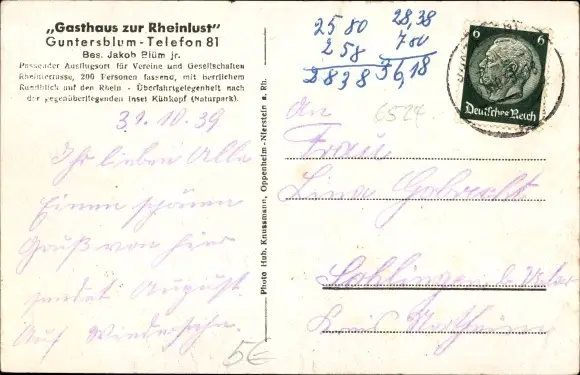 „Gasthaus zur Rheinlust"
Guntersblum - Telefon 81
Bes. Jakob Blüm jr.
Passender Ausflugsort für Vereine und Gesellschaften
Rheinterrasse, 200 Personen fassend, mit herrlichem
Rundblick auf den Rhein - Überfahrtgelegenheit nach
der gegenüberliegenden Insel Kühkopf (Naturpark).
31.10.39
Ihr lieben Alle
Einen schönen
Gruß von hier
sendet August.
Auf Wiedersehn.
5€
Photo Hub. Knussmann, Oppenheim-Nierstein a. Rh.
25 80
2 58
28 38
28,38
7 80
36,18
6 6
Deutsches Reich
An
Frau
Lina
Kreis